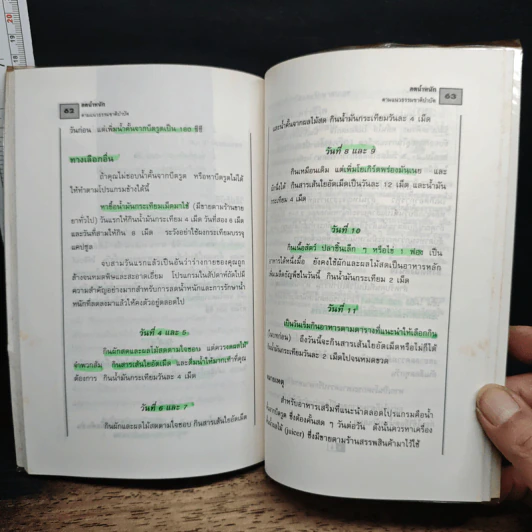 63
ลดน้ำหนัก
ตามแนวธรรมชาติบำบัด
วันก่อน แต่เพิ่มน้ำคั้นจากบีตรูตเป็น 180 ซีซี
ทางเลือกอื่น
ถ้าคุณไม่ชอบน้ำคั้นจากบีตรูต หรือหาบีตรูตไม่ได้
ให้ทำตามโปรแกรมข้างใต้นี้
หาซื้อน้ำมันกระเทียมเม็ดมาใช้ (มีขายตามร้านขาย
ยาทั่วไป) วันแรกให้กินน้ำมันกระเทียม 4 เม็ด วันที่สอง 6 เม็ด
และวันที่สามให้กิน 8 เม็ด ระวังอย่าใช้ผงกระเทียมบรรจุ
แคปซูล
จบสามวันแรกแล้วเป็นอันว่าร่างกายของคุณถูก
ล้างจนหมดพิษและสะอาดเอี่ยม โปรแกรมในสัปดาห์ถัดไปมี
ความสำคัญอย่างมากสำหรับการลดน้ำหนักและการรักษาน้ำ
หนักที่ลดลงมาแล้วให้คงตัวอยู่ตลอดไป
วันที่ 4 และ 5
กินผักสดและผลไม้สดตามใจชอบ แต่ควรงดผลไม้
จำพวกส้ม กินสารเส้นใยอัดเม็ด และดื่มน้ำให้มากเท่าที่คุณ
ต้องการ กินน้ำมันกระเทียมวันละ 4 เม็ด
วันที่ 6 และ 7
กินผักและผลไม้สดตามใจชอบ กินสารเส้นใยอัดเม็ด
ลดน้ำหนัก
ตามแนวธรรมชาติบำบัด
63
และน้ำคั้นจากผลไม้สด กินน้ำมันกระเทียมวันละ 4 เม็ด
วันที่ 8 และ 9
กินเหมือนเดิม แต่เพิ่มโยเกิร์ตพร่องมันเนย และ
กินสารเส้นใยอัดเม็ดเป็นวันละ 12 เม็ด และน้ำมัน
กระเทียม 4 เม็ด
วันที่ 10
กินเนื้อสัตว์ ปลาชิ้นเล็ก ๆ หรือไข่ 1 ฟอง เป็น
อาหารได้หนึ่งมื้อ ยังคงใช้ผักและผลไม้สดเป็นอาหารหลัก
กินน้ำมันกระเทียม 2 เม็ด
วันที่ 11
เป็นวันเริ่มกินอาหารตามตารางที่แนะนำให้เลือกกิน
ถึงวันนี้จะกินสารเส้นใยอัดเม็ดหรือไม่ก็ได้
กินน้ำมันกระเทียมวันละ 2 เม็ดไปจนหมดขวด
หมายเหตุ
สำหรับอาหารเสริมที่แนะนำตลอดโปรแกรมคือน้ำ
บีตรูต ซึ่งต้องคั้นสด ๆ วันต่อวัน ดังนั้นควรหาเครื่อง
(juicer) ซึ่งมีขายตามร้านสรรพสินค้ามาไว้ใช้